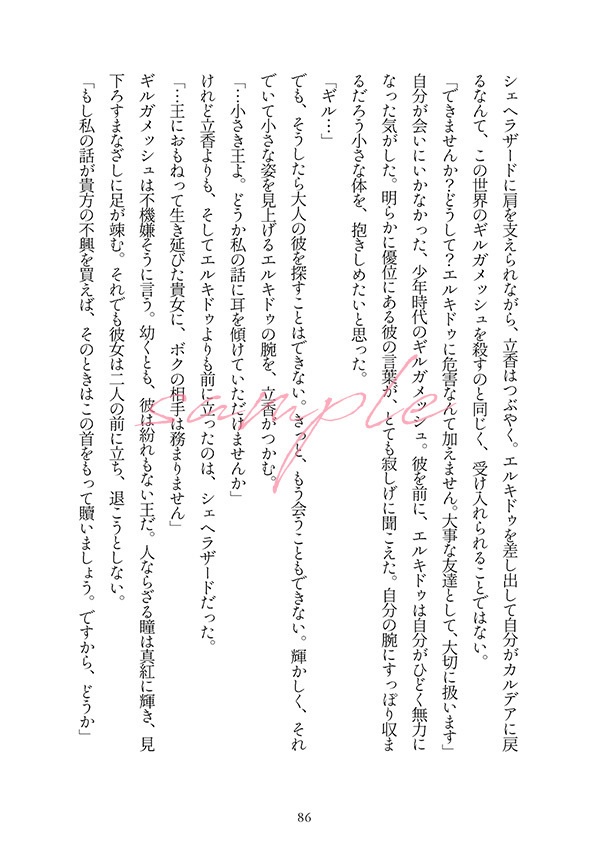 シェヘラザードに肩を支えられながら、立香はつぶやく。エルキドゥを差し出して自分がカルデアに戻
るなんて、この世界のギルガメッシュを殺すのと同じく、受け入れられることではない。
「できませんか？どうして？エルキドゥに危害なんて加えません。大事な友達として、大切に扱います」
自分が会いにいかなかった、少年時代のギルガメッシュ。彼を前に、エルキドゥは自分がひどく無力に
なった気がした。明らかに優位にある彼の言葉が、とても寂しげに聞こえた。自分の腕にすっぽり収ま
るだろう小さな体を、抱きしめたいと思った。
「ギル…」
でも、そうしたら大人の彼を探すことはできない。きっと、もう会うこともできない。輝かしく、それ
でいて小さな姿を見上げるエルキドゥの腕を、立香がつかむ。
「…小さき王よ。どうか私の話に耳を傾けていただけませんか」
けれど立香よりも、そしてエルキドゥよりも前に立ったのは、シェヘラザードだった。
「…王におもねって生き延びた貴女に、ボクの相手は務まりません」
ギルガメッシュは不機嫌そうに言う。幼くとも、彼は紛れもない王だ。人ならざる瞳は真紅に輝き、見
下ろすまなざしに足が竦む。それでも彼女は二人の前に立ち、退こうとしない。
「もし私の話が貴方の不興を買えば、そのときはこの首をもって贖いましょう。ですから、どうか」
sample
86